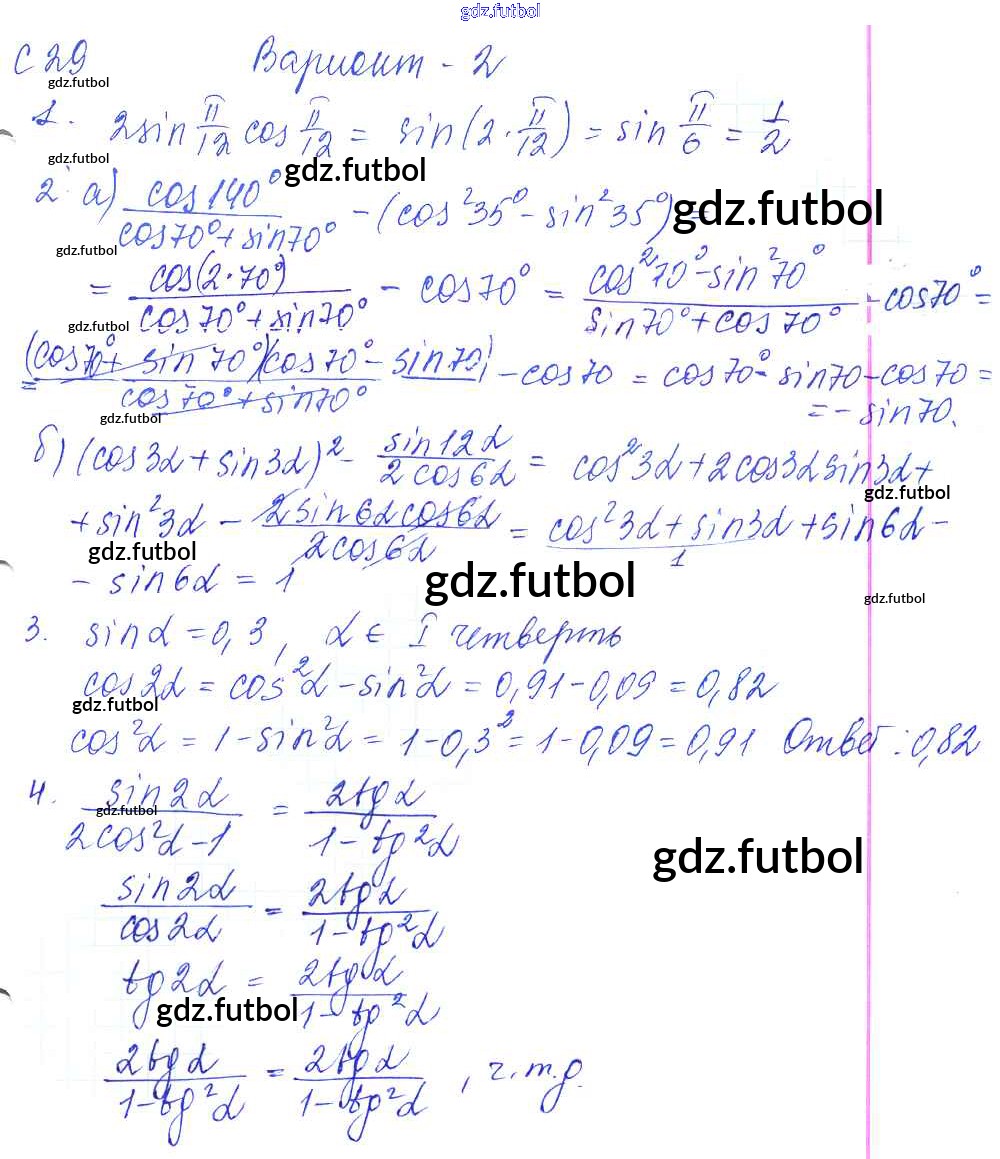 gdz.futbol
С 29 Вариант - 2
gdz.futbol
1. 2sin π/12 cos π/12 = sin(2·π/12) = sin π/6 = 1/2
gdz.futbol gdz.futbol
2. а) cos140°/(cos70°+sin70°) - (cos²35° - sin²35°) =
gdz.futbol
gdz.futbol
= cos(2·70°)/(cos70°+sin70°) - cos70° = (cos²70°-sin²70°)/(sin70°+cos70°) - cos70° =
gdz.futbol
= (cos70°+sin70°)(cos70°-sin70)/(cos70°+sin70°) - cos70 = cos70° - sin70 - cos70 =
= - sin70.
gdz.futbol
б) (cos3α+sin3α)² - sin12α/2cos6α = cos²3α+2cos3αsin3α+
gdz.futbol
+ sin²3α - 2sin6αcos6α/2cos6α = cos²3α+sin3α+sin6α -
1
gdz.futbol
- sin6α = 1
gdz.futbol
gdz.futbol
3. sinα = 0,3, α ∈ I четверть
cos2α = cos²α - sin²α = 0,91 - 0,09 = 0,82
gdz.futbol
cos²α = 1 - sin²α = 1 - 0,3² = 1 - 0,09 = 0,91 Ответ: 0,82
4. sin2α/(2cos²α-1) = 2tgα/(1-tg²α)
gdz.futbol
gdz.futbol
sin2α/cos2α = 2tgα/(1-tg²α)
tg2α = 2tgα/(1-tg²α)
gdz.futbol
2tgα/(1-tg²α) = 2tgα/(1-tg²α), ч.т.д.